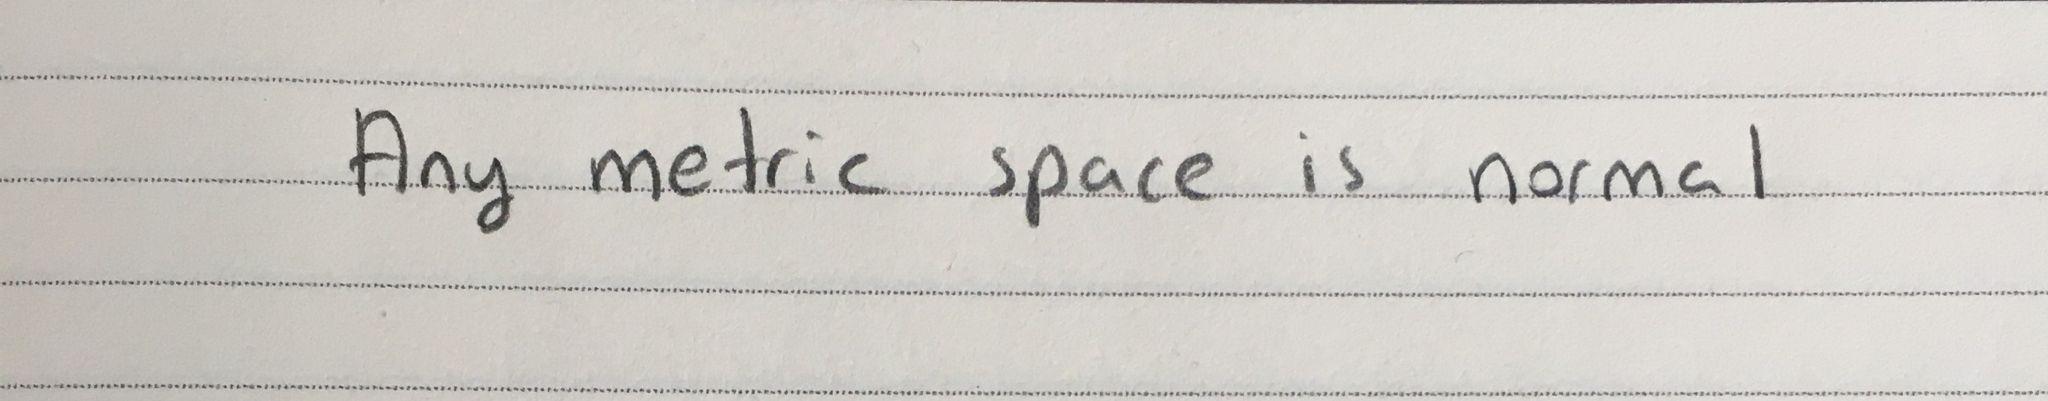 Any metric space is normal